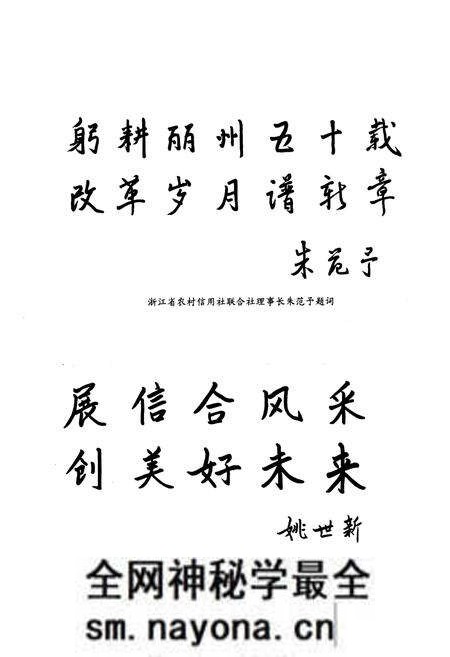 躬耕丽州五十载
改革岁月谱新章
朱范予
浙江省农村信用社联合社理事长朱范予题词
展信合风采
创美好未来
姚世新
全网神秘学最全
sm.nayona.cn